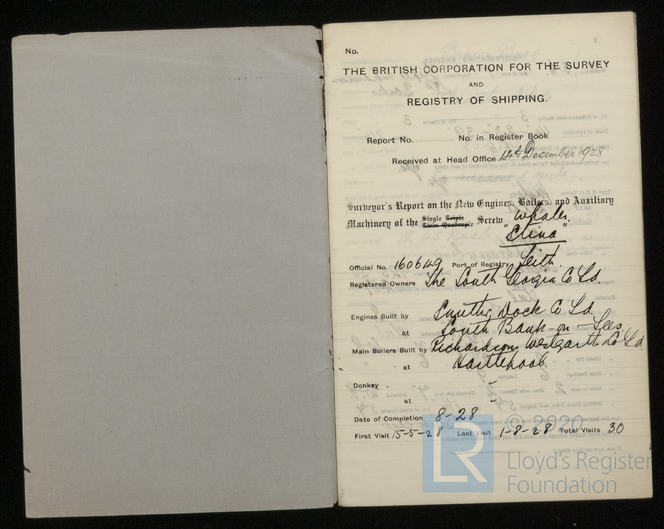 No.
THE BRITISH CORPORATION FOR THE SURVEY
AND
REGISTRY OF SHIPPING.
Report No. No. in Register Book
Received at Head Office 14th December 1928
Surveyor's Report on the New Engines, Boilers, and Auxiliary
Machinery of the Single Triple Twin Quadruple Screw Whaler
"Stina"
Official No. 160649 Port of Registry Leith.
Registered Owners The South Georgia Co Ld.
Engines Built by Smiths Dock Co Ld.
at South Bank-on-Tees
Main Boilers Built by Richardsons Westgarth Co Ld
at Hartlepool.
Donkey " "
at
Date of Completion 8-28
First Visit 15-5-28 Last Visit 1-8-28 Total Visits 30
© 2020
LR Lloyd's Register
Foundation